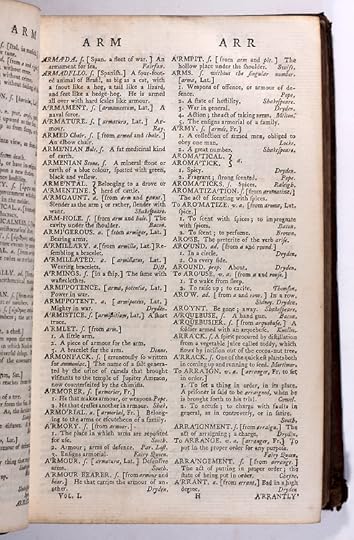 ARM
ARR
ARMA'DA. s. [Span. a fleet of war.] An
armament for sea. Fairfax.
ARMADI'LLO. s. [Spanish.] A four-foot-
ed animal of Brasil, as big as a cat, with
a snout like a hog, a tail like a lizard,
and feet like a hedge-hog. He is armed
all over with hard scales like armour.
A'RMAMENT. s. [armamentum, Lat.] A
naval force.
A'RMATURE. s. [armatura, Lat.] Ar-
mour. Ray.
ARMED Chair. s. [from armed and chair.]
An elbow chair.
ARMENIAN Bole. s. A fat medicinal kind
of earth.
ARMENIAN Stone. s. A mineral stone or
earth of a blue colour, spotted with green,
black and yellow.
ARMENTAL. } Belonging to a drove or
ARMENTINE. } herd of cattle.
A'RMGAUNT. a. [from arm and gaunt.]
Slender as the arm; or rather, slender with
want. Shakespeare.
ARM-HOLE. s. [from arm and hole.] The
cavity under the shoulder. Bacon.
ARMI'GEROUS. a. [from armiger, Lat.]
Bearing arms.
A'RMILLARY. a. [from armilla, Lat.] Re-
sembling a bracelet.
A'RMILLATED. a. [armillatus, Lat.]
Wearing bracelets. Dict.
A'RMINGS. s. [in a ship.] The same with
wasteclothes.
ARMI'POTENCE. s. [arma, potentia, Lat.]
Power in war.
ARMI'POTENT. a. [armipotens, Lat.]
Mighty in war. Dryden.
A'RMISTICE. s. [armistitium, Lat.] A short
truce.
A'RMLET. s. [from arm.]
1. A little arm.
2. A piece of armour for the arm.
3. A bracelet for the arm. Donne.
ARMONI'ACK. s. [erroneously so written
for ammoniac.] The name of a salt gener-
ated by the urine of camels that brought
visitants to the temple of Jupiter Ammon,
now counterfeited by the chimists.
A'RMORER. s. [armorier, Fr.]
1. He that makes armour, or weapons. Pope.
2. He that dresses another in armour. Shak.
ARMO'RIAL. a. [armorial, Fr.] Belong-
ing to the arms or escutcheon of a family.
A'RMORY. s. [from armour.]
1. The place in which arms are reposited
for use. South.
2. Armour; arms of defence. Par. Lost.
3. Ensigns armorial. Fairy Queen.
A'RMOUR. s. [armatura, Lat.] Defensive
arms. South.
A'RMOUR BEARER. s. [from armour and
bear.] He that carries the armour of an-
other. Dryden.
VOL. I.
A'RMPIT. s. [from arm and pit.] The
hollow place under the shoulder. Swift.
ARMS. s. without the singular number.
[arma, Lat.]
1. Weapons of offence, or armour of de-
fence. Pope.
2. A state of hostility. Shakespeare.
3. War in general. Dryden.
4. Action; the act of taking arms. Milton.
5. The ensigns armorial of a family.
A'RMY. s. [armée, Fr.]
1. A collection of armed men, obliged to
obey one man. Locke.
2. A great number. Shakespeare.
AROMA'TICAL. } a.
AROMA'TICK. }
1. Spicy. Dryden.
2. Fragrant; strong scented. Pope.
AROMA'TICKS. s. Spices. Raleigh.
AROMATIZA'TION. s. [from aromatize.]
The act of scenting with spices.
To ARO'MATIZE. v. a. [from aroma, Lat.
spice.]
1. To scent with spices; to impregnate
with spices. Bacon.
2. To scent; to perfume. Brown.
ARO'SE. The preterite of the verb arise.
ARO'UND. ad. [from a and round.]
1. In a circle. Dryden.
2. On every side.
ARO'UND. prep. About. Dryden.
To ARO'USE. v. a. [from a and rouse.]
1. To wake from sleep.
2. To raise up; to excite. Thomson.
ARO'W. ad. [from a and row.] In a row.
Sidney, Dryden.
AROYNT. Be gone; away. Shakespeare.
A'RQUEBUSE. s. A hand gun. Bacon.
A'RQUEBUSIER. s. [from arquebuse.] A
soldier armed with an arquebuse. Knolles.
ARRA'CK. s. A spirit procured by distillation
from a vegetable juice called toddy, which
flows by incision out of the cocoa-nut tree.
A'RRACK. s. One of the quickest plants both
in coming up and running to seed. Mortimer.
To ARRA'IGN. v. a. [arranger, Fr. to set
in order.]
1. To set a thing in order, in its place.
A prisoner is said to be arraigned, when he
is brought forth to his trial. Cowel.
2. To accuse; to charge with faults in
general, as in controversy, or in satire.
South.
ARRA'IGNMENT. s. [from arraign.] The
act of arraigning; a charge. Dryden.
To ARRA'NGE. v. a. [arranger, Fr.] To
put in the proper order for any purpose.
Fairy Queen.
ARRA'NGEMENT. s. [from arrange.]
The act of putting in proper order; the
state of being put in order. Cheyne.
A'RRANT. a. [from errant.] Bad in a high
degree. Dryden.
H
A'RRANTLY'